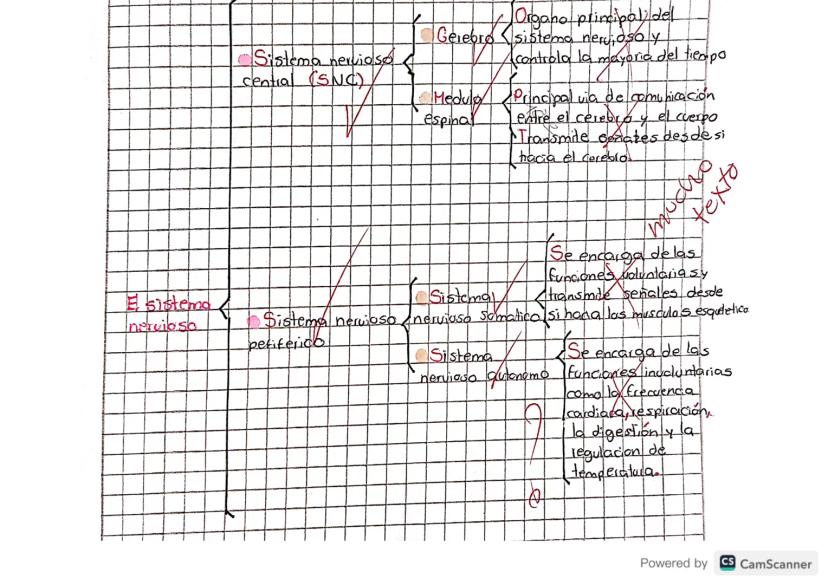 El sistema
nervioso
Sistema nervioso
central (SNC)
Cerebro
Organo principal del
sistema nervioso y
controla la mayoria del tiempo
Medula
espinal
Principal via de comunicación
entre el cerebro y el cuerpo
Transmite señales desde si
hacia el cerebro.
mucho
texto
Sistema nervioso
periferico
Sistema
nervioso somatico
Se encarga de las
funciones voluntarias y
transmite señales desde
si hacia los musculos esqueletico
Sistema
nervioso autonomo
Se encarga de las
funciones involuntarias
como la frecuencia
cardiaca, respiración,
la digestión y la
regulacion de
temperatura.
?
Powered by CS CamScanner